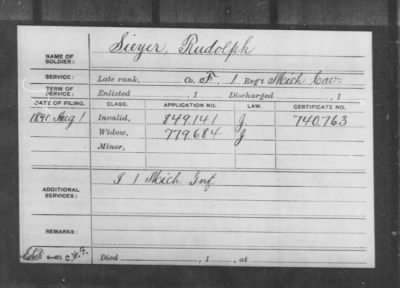 NAME OF SOLDIER: Sieyer, Rudolph
SERVICE: Late rank, Co. F, 1 Reg't Mich Cav.
TERM OF SERVICE: Enlisted , 1 Discharged , 1
DATE OF FILING. CLASS. APPLICATION NO. LAW. CERTIFICATE NO.
Aug 1 Invalid, 849.141 J. 740.763
Widow, 779.684 J
Minor,
ADDITIONAL SERVICES: I 1 Mich Inf.
REMARKS:
Died , 1 , at